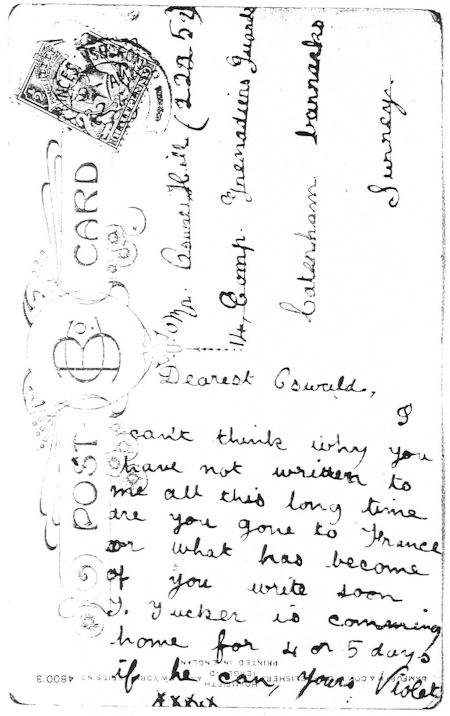 POST CARD
B & Co.
Mr. Oswald Hill (22252)
14, Comp. Grenadiers Guards
Caterham barracks
Surrey.
Dearest Oswald,
I
can't think why you
have not written to
me all this long time
are you gone to France
or what has become
of you write soon
T. Tucker is comming
home for 4 or 5 days
if he can, yours Violet
xxxx
PRINTED IN ENGLAND
4800/3